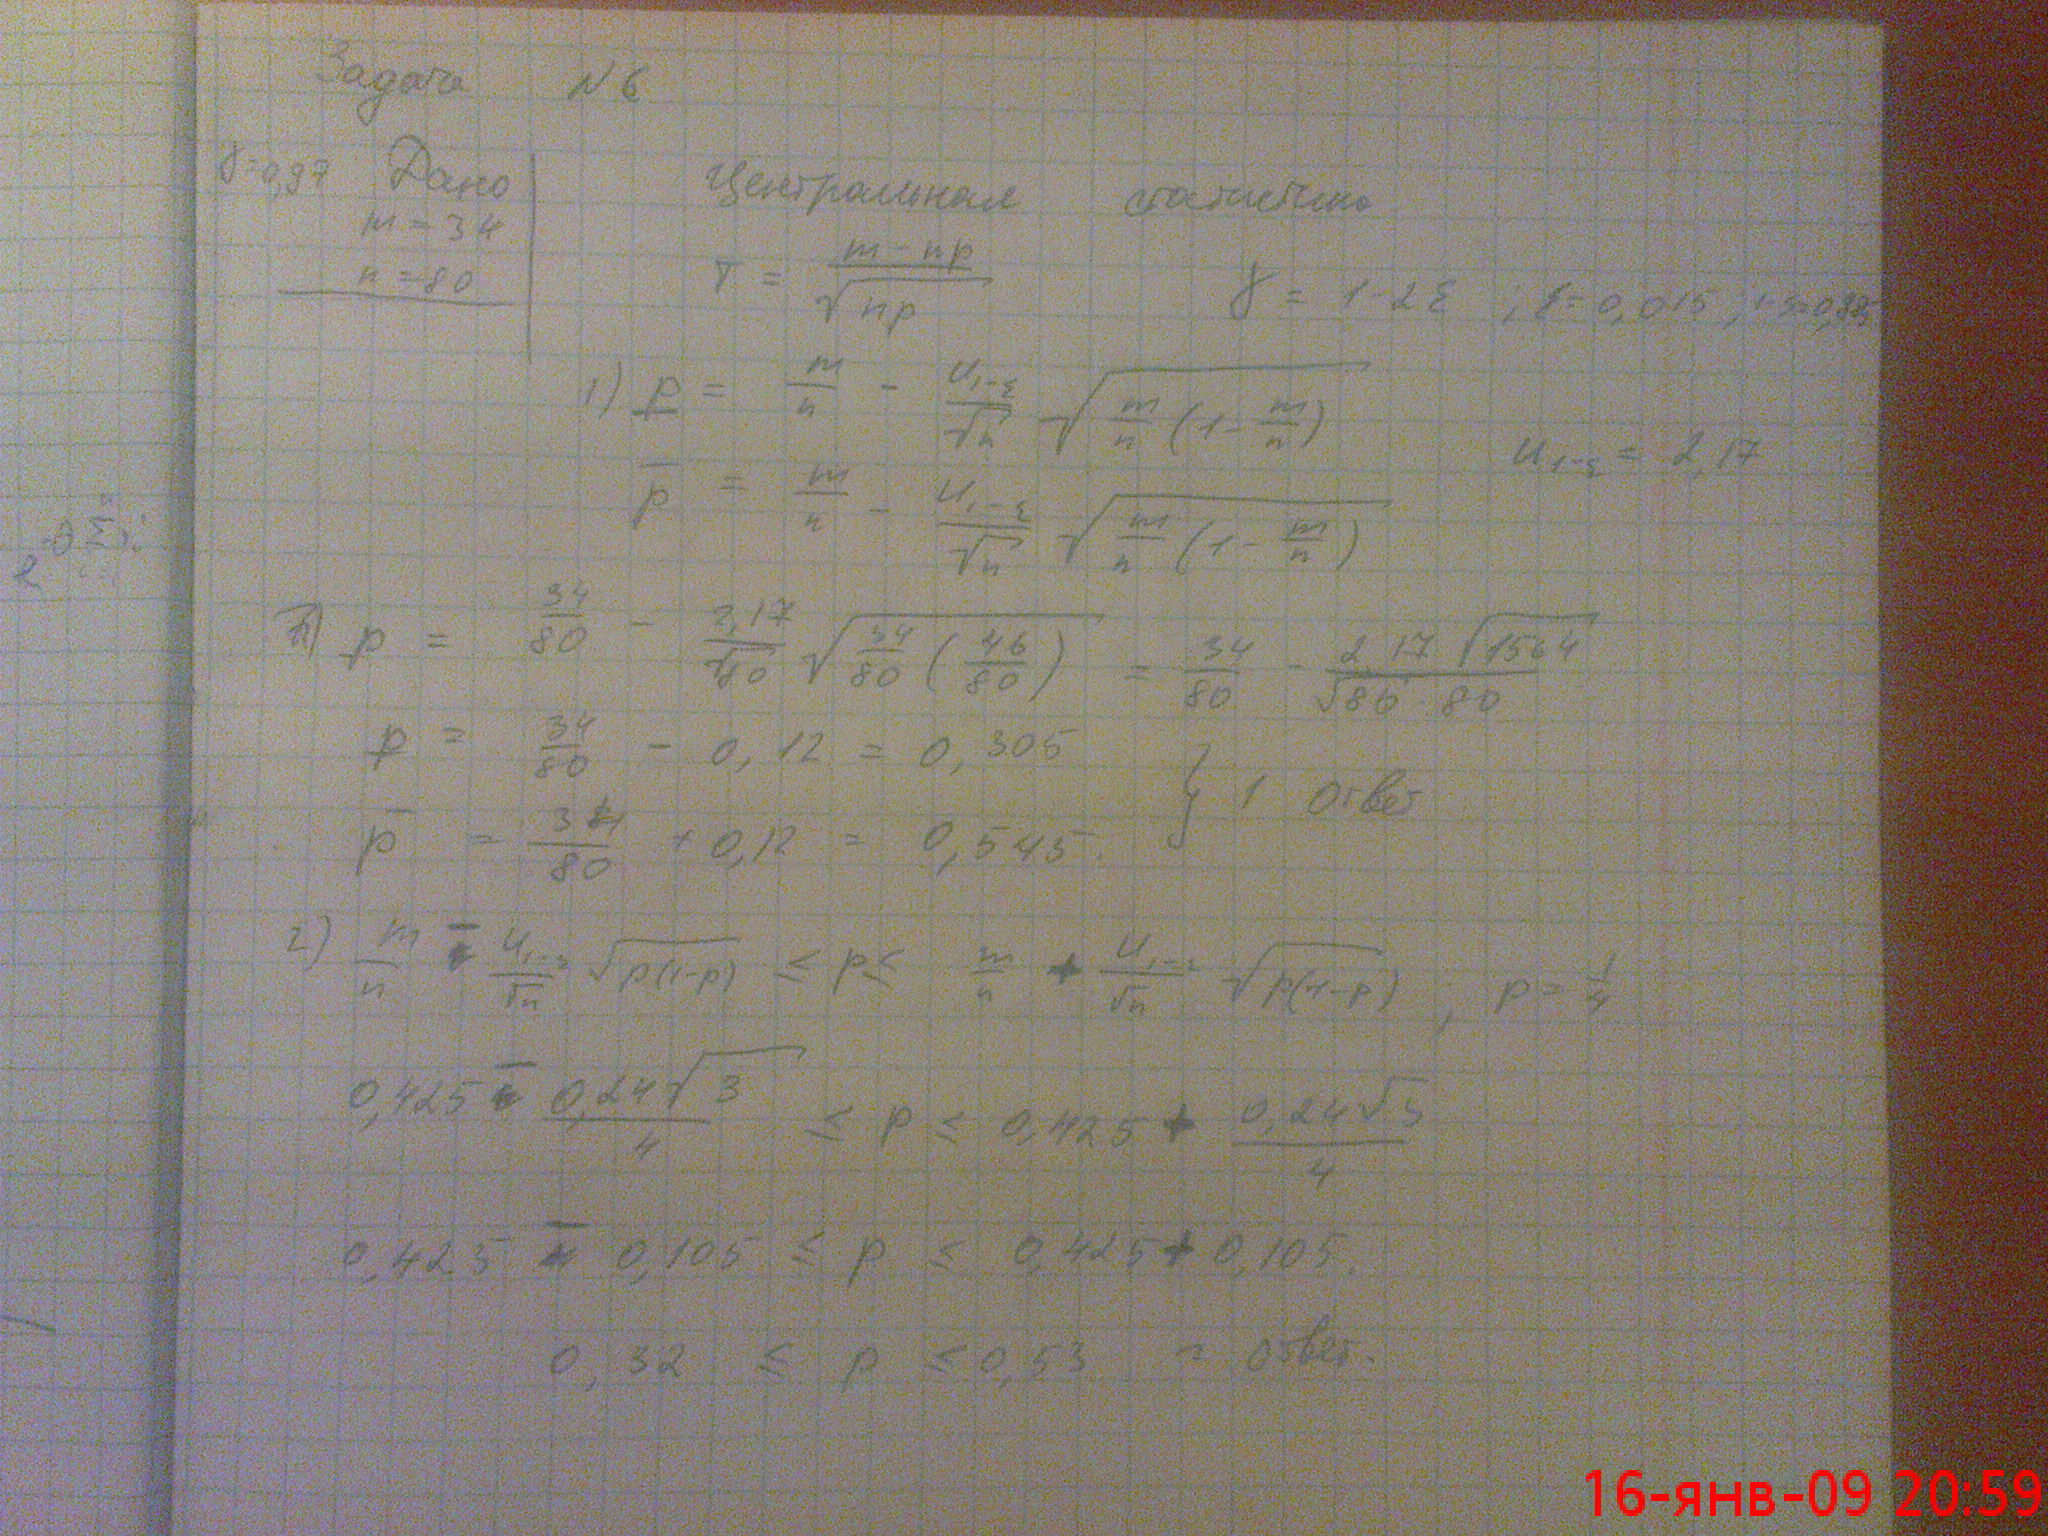 Задача N 6
γ=0,97 Дано
m = 34
n = 80
Центральная статистика
T = \frac{m - np}{\sqrt{np}} γ = 1-2ε ; ε=0,015 , 1-ε=0,985
1) \underline{p} = \frac{m}{n} - \frac{u_{1-ε}}{\sqrt{n}} \sqrt{\frac{m}{n}(1-\frac{m}{n})}
u_{1-ε} = 2,17
\overline{p} = \frac{m}{n} - \frac{u_{1-ε}}{\sqrt{n}} \sqrt{\frac{m}{n}(1-\frac{m}{n})}
\underline{p} = \frac{34}{80} - \frac{2,17}{\sqrt{80}} \sqrt{\frac{34}{80}(\frac{46}{80})} = \frac{34}{80} - \frac{2 17 \sqrt{1564}}{\sqrt{80} · 80}
\underline{p} = \frac{34}{80} - 0,12 = 0,305
} 1 ответ
\overline{p} = \frac{34}{80} + 0,12 = 0,545.
2) \frac{m}{n} - \frac{u_{1-ε}}{\sqrt{n}} \sqrt{p(1-p)} ≤ p ≤ \frac{m}{n} + \frac{u_{1-ε}}{\sqrt{n}} \sqrt{p(1-p)} ; p = \frac{1}{4}
0,425 - \frac{0,24\sqrt{3}}{4} ≤ p ≤ 0,425 + \frac{0,24\sqrt{3}}{4}
0,425 - 0,105 ≤ p ≤ 0,425 + 0,105.
0,32 ≤ p ≤ 0,53 - ответ.
16-янв-09 20:59